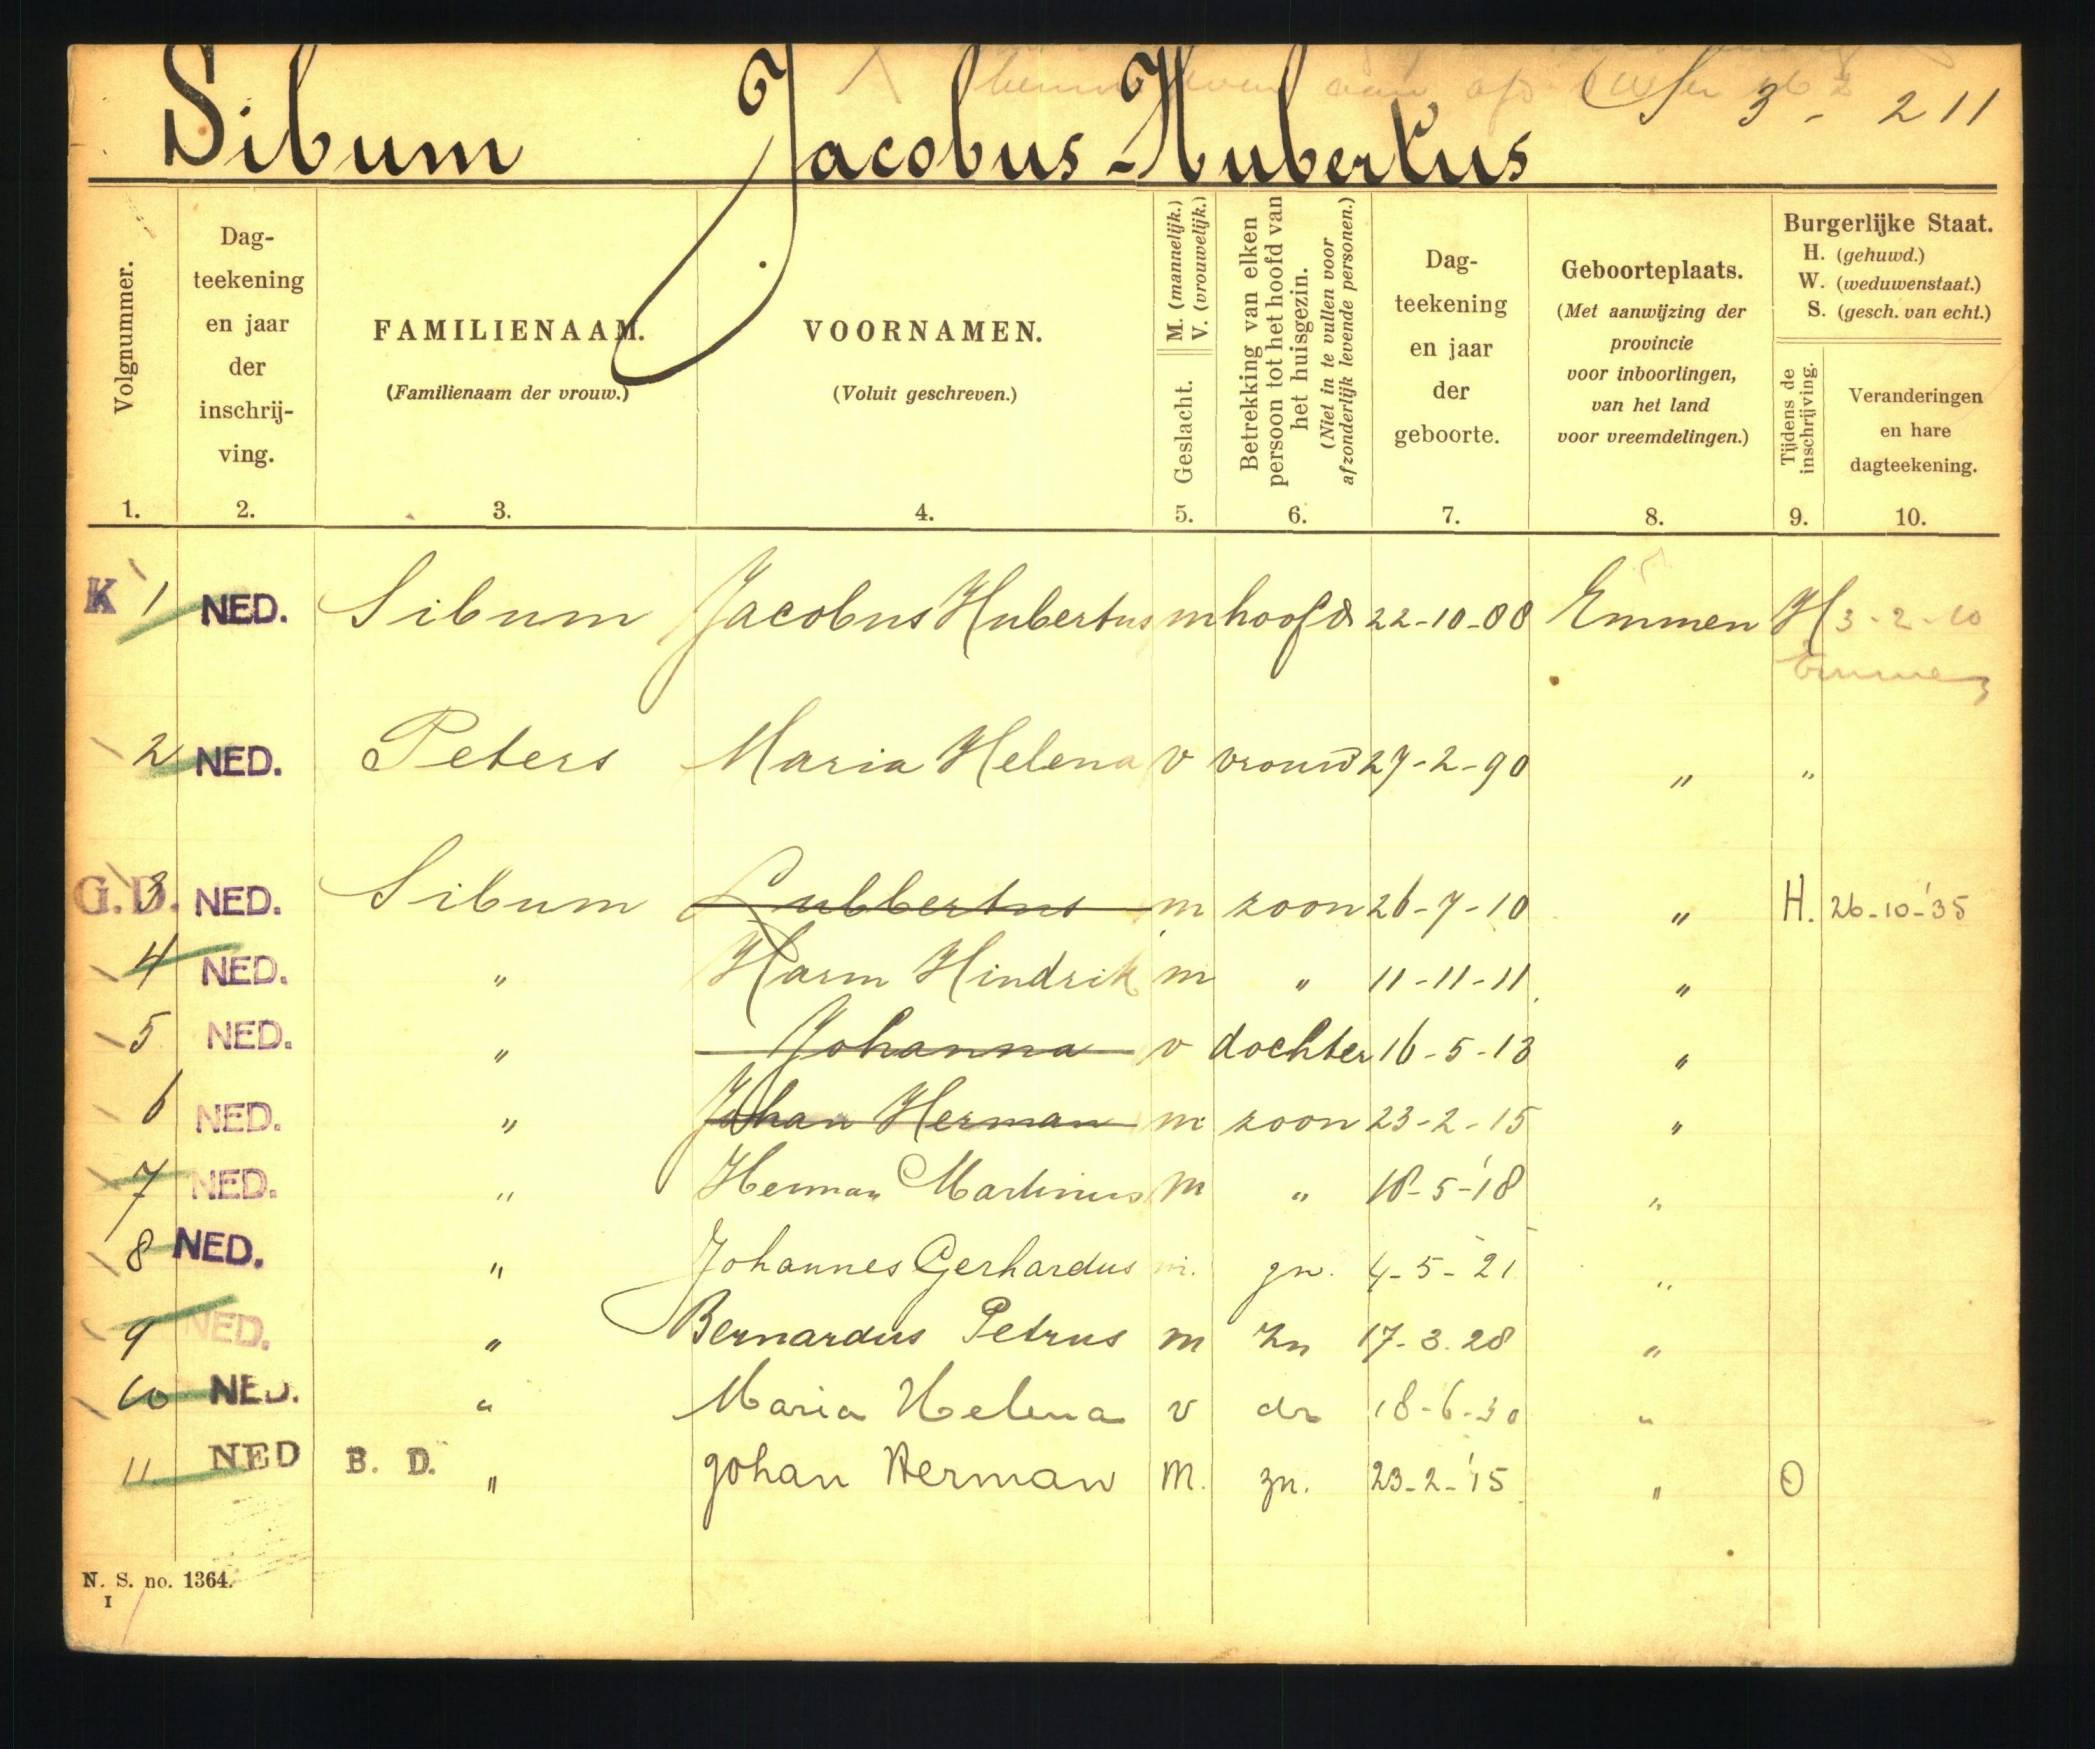 S 3 - 211
Sibum Jacobus-Hubertus
Volgnummer.
1.
Dag-
teekening
en jaar
der
inschrij-
ving.
2.
FAMILIENAAM.
(Familienaam der vrouw.)
3.
VOORNAMEN.
(Voluit geschreven.)
4.
M. (mannelijk.)
V. (vrouwelijk.)
Geslacht.
5.
Betrekking van elken
persoon tot het hoofd van
het huisgezin.
(Niet in te vullen voor
afzonderlijk levende personen.)
6.
Dag-
teekening
en jaar
der
geboorte.
7.
Geboorteplaats.
(Met aanwijzing der
provincie
voor inboorlingen,
van het land
voor vreemdelingen.)
8.
Burgerlijke Staat.
H. (gehuwd.)
W. (weduwenstaat.)
S. (gesch. van echt.)
Tijdens de
inschrijving.
9.
Veranderingen
en hare
dagteekening.
10.
K 1 NED. Sibum Jacobus Hubertus m hoofd 22-10-88 Emmen H 3-2-10
Emmen
2 NED. Peters Maria Helena v vrouw 27-2-90 " "
G.D. 3 NED. Sibum Lubbertus m zoon 26-7-10 " H. 26-10-'35
4 NED. " Harm Hindrik m " 11-11-11 "
5 NED. " Johanna v dochter 16-5-13 "
6 NED. " Johan Herman m zoon 23-2-15 "
7 NED. " Herman Martinus m " 18-5-'18 "
8 NED. " Johannes Gerhardus m. zn. 4-5-21 "
9 NED. " Bernardus Petrus m zn 17-3.28 "
10 NED. " Maria Helena v dr 18-6-30 "
11 NED B. D. " Johan Herman M. zn. 23-2-'15 " O
N. S. no. 1364.
I